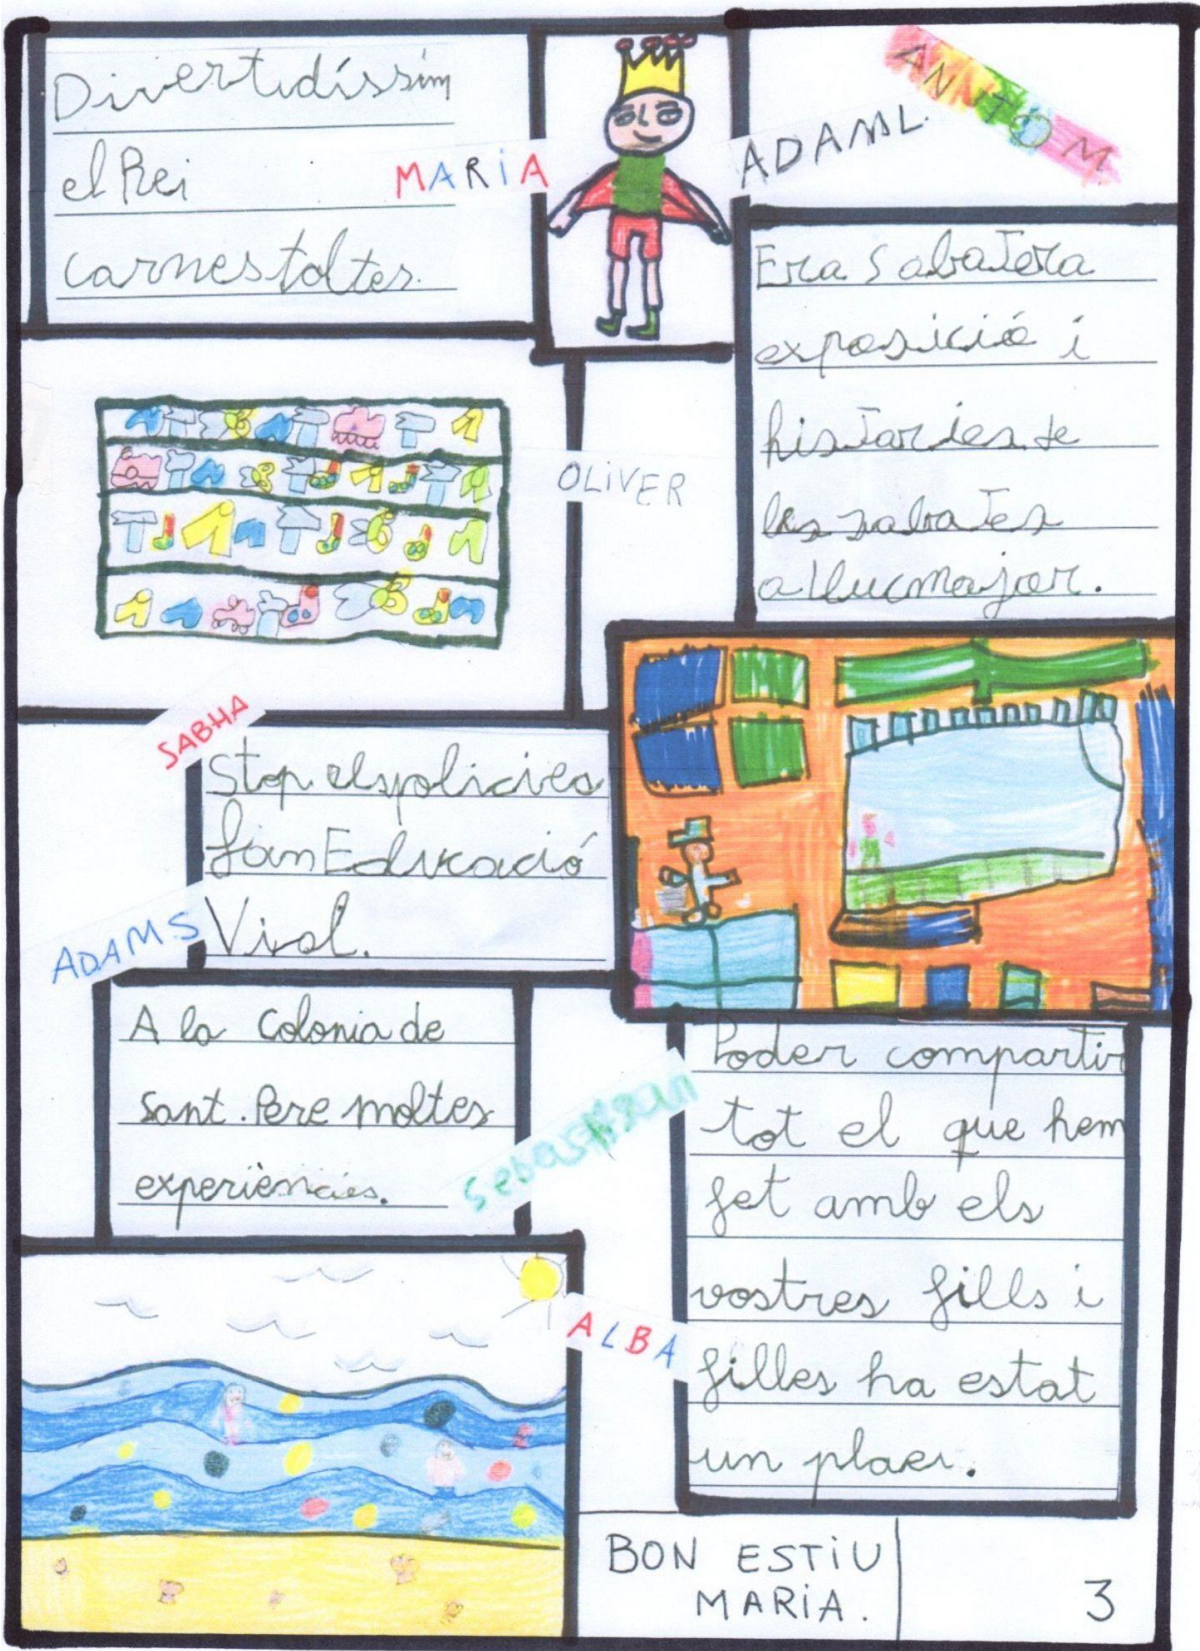 Divertidíssim
el Rei
carnestoltes.
MARIA
ADAML.
AN TOM
Era Sabatera
exposició i
histories de
les sabates
a Llucmajor.
OLIVER
SABHA
Stop els policies
fan Educació
Vial.
ADAMS
A la Colonia de
Sant. Pere moltes
experiències.
Sebastian
Poder compartir
tot el que hem
fet amb els
vostres fills i
filles ha estat
un plaer.
ALBA
BON ESTIU
MARIA.
3